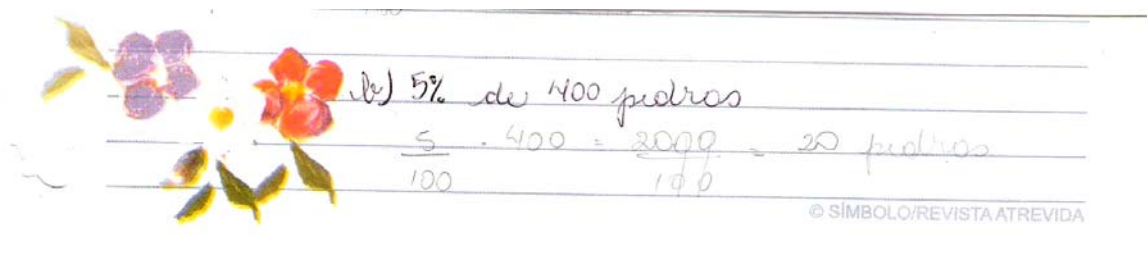 b) 5% de 400 pedras
5/100 . 400 = 2000/100 = 20 pedras
© SÍMBOLO/REVISTA ATREVIDA